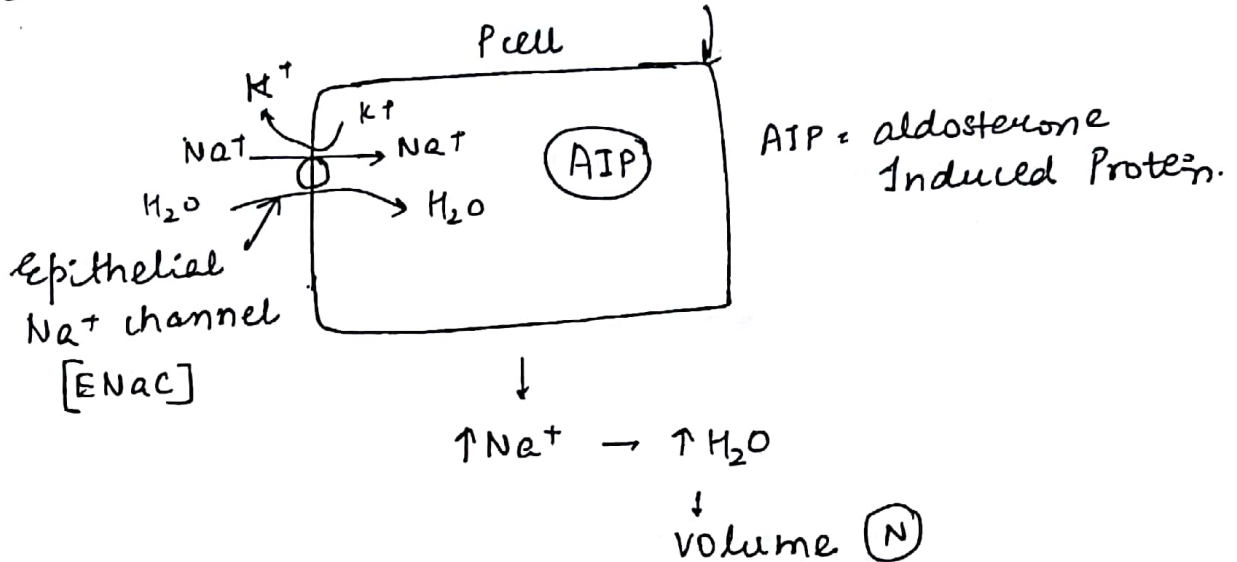 P cell
K⁺
K⁺
Na⁺ → Na⁺
H₂O → H₂O
AIP
AIP = aldosterone
Induced Protein.
Epithelial
Na⁺ channel
[ENaC]
↓
↑ Na⁺ → ↑ H₂O
↓
volume Ⓝ